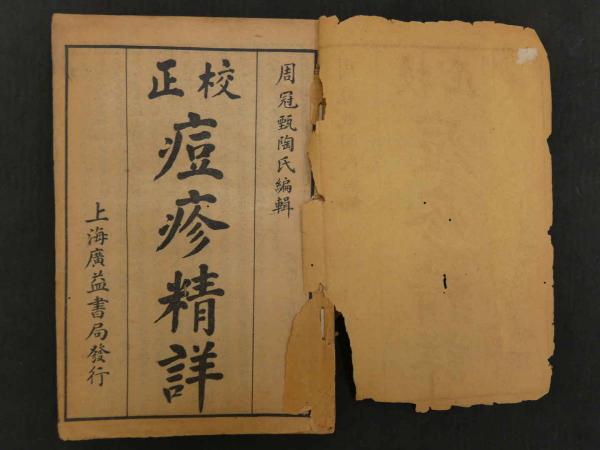 周冠甄陶氏編輯
校正
痘疹精詳
上海廣益書局發行